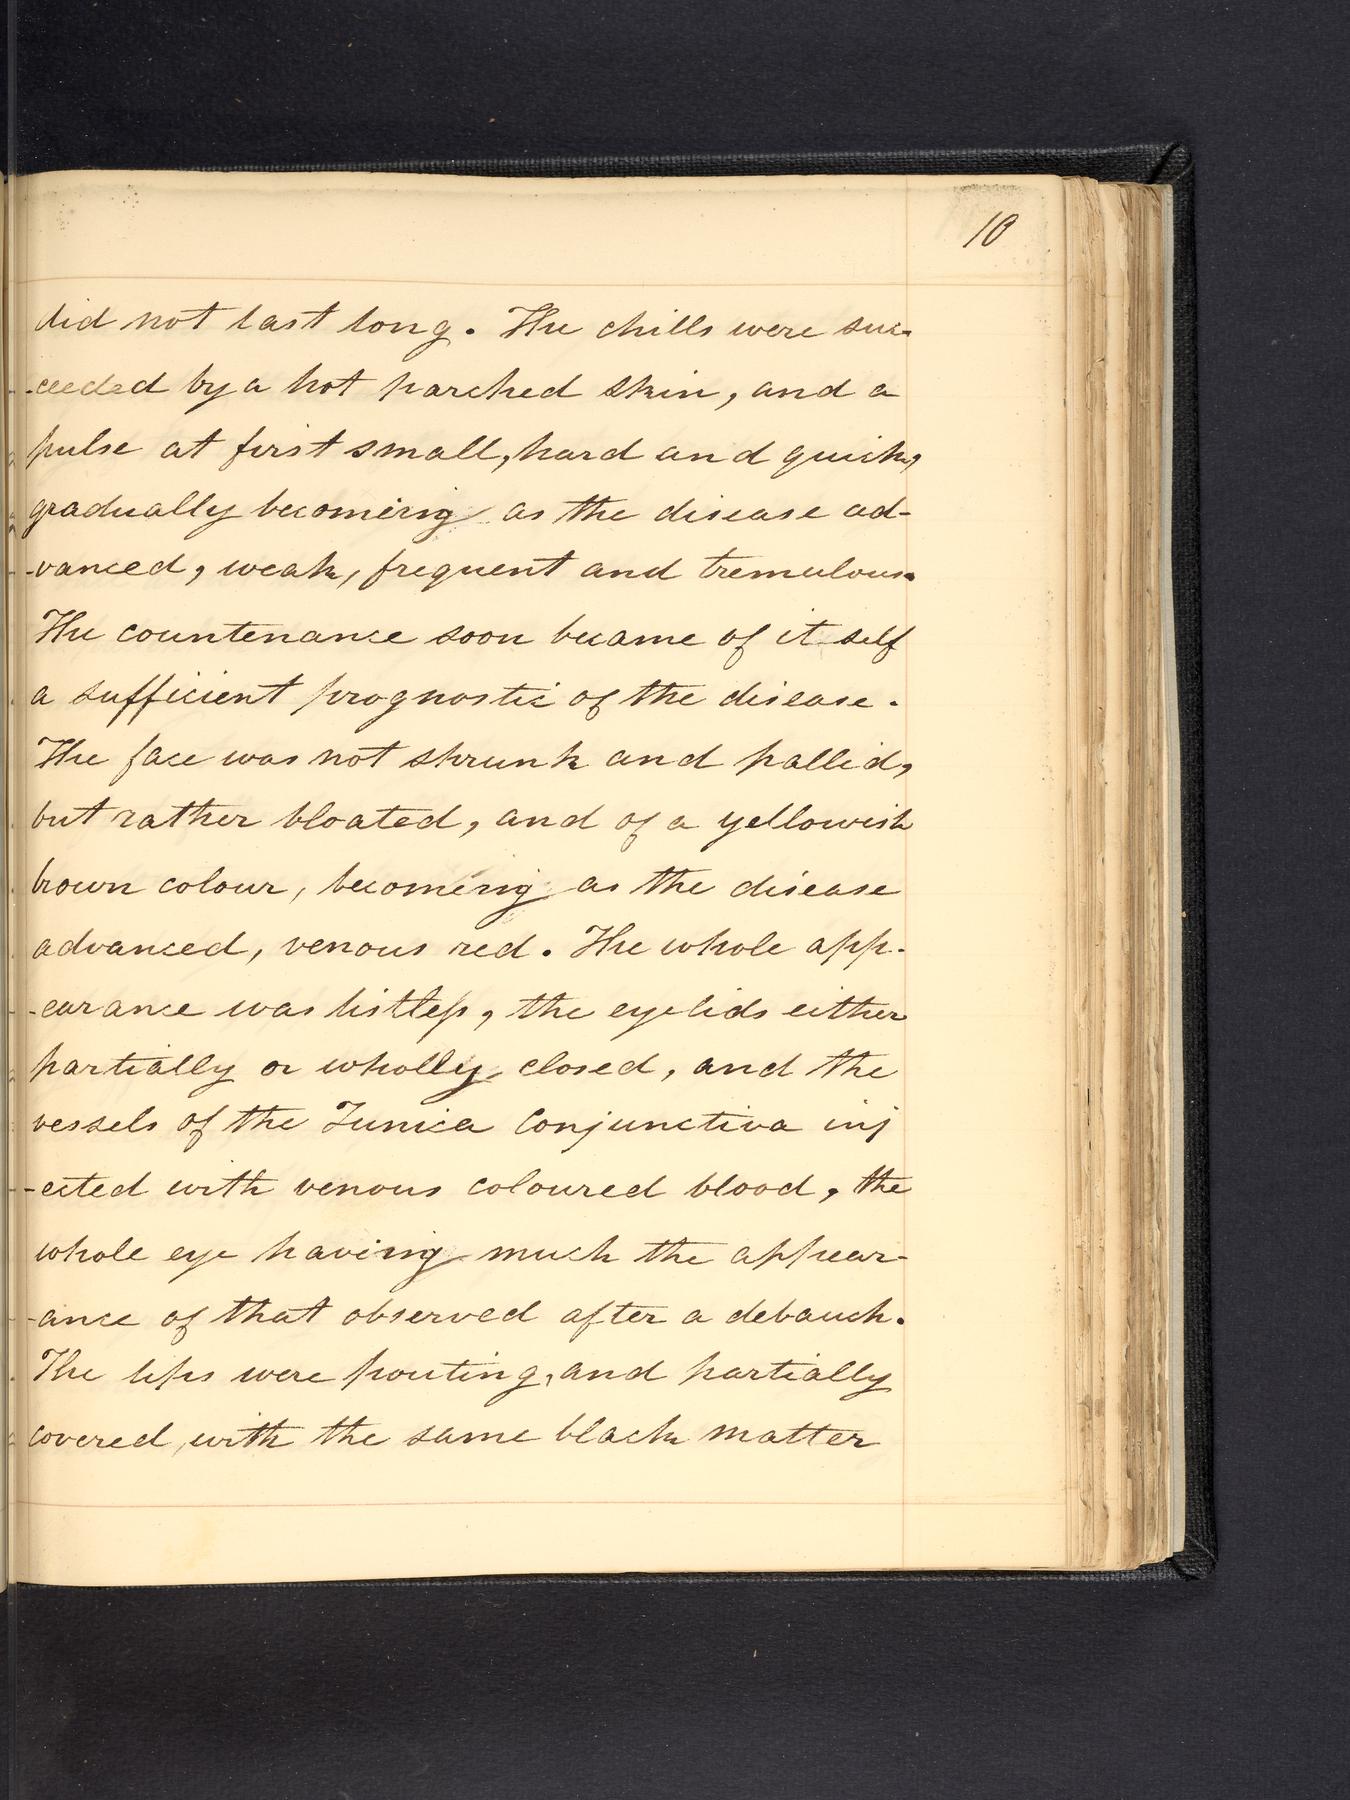 10
did not last long. The chills were suc-
-ceeded by a hot parched skin, and a
pulse at first small, hard and quick,
gradually becoming as the disease ad-
-vanced, weak, frequent and tremulous.
The countenance soon became of it self
a sufficient prognostic of the disease.
The face was not shrunk and pallid,
but rather bloated, and of a yellowish
brown colour, becoming as the disease
advanced, venous red. The whole app-
-earance was listless, the eyelids either
partially or wholly closed, and the
vessels of the Tunica Conjunctiva inj
-ected with venous coloured blood, the
whole eye having much the appear-
-ance of that observed after a debauch.
The lips were pouting, and partially
covered with the same black matter